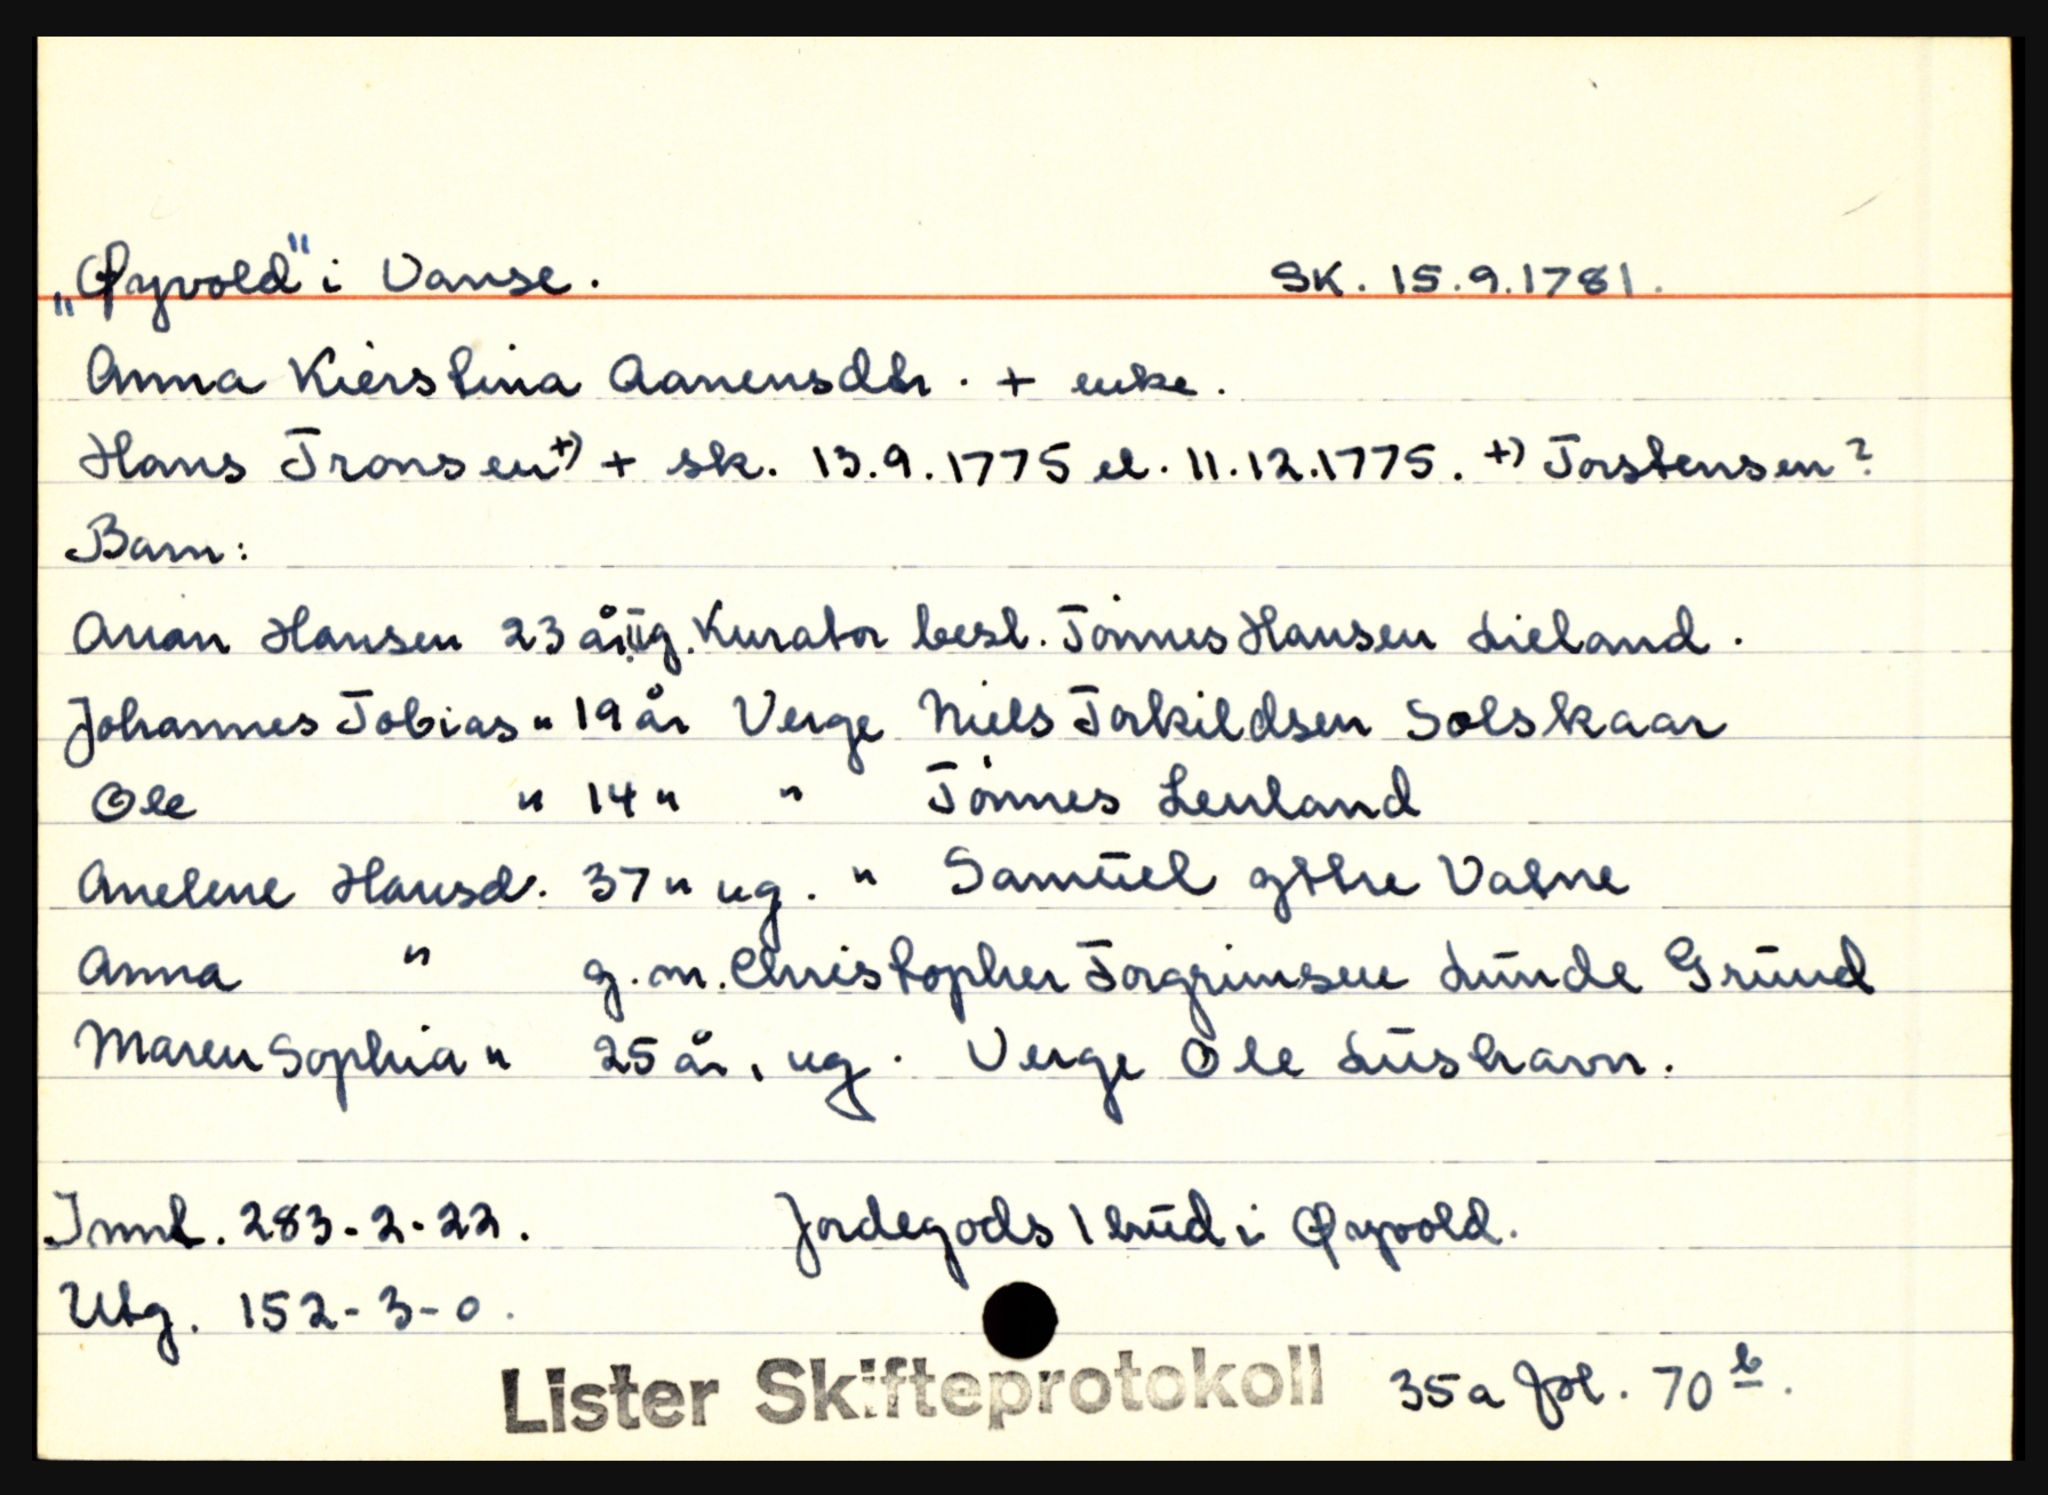 „Øyvold" i Vanse. SK. 15.9.1781.
Anna Kierstina Aanensdtr. + enke.
Hans Tronsen +) + sk. 13.9.1775 el. 11.12.1775. +) Torstensen?
Barn:
Anan Hansen 23 år, ug. Kurator besl. Tönnes Hansen Lieland.
Johannes Tobias " 19 år Verge Niels Torkildsen Solskaar
Ole " 14 " " Tönnes Leuland
Anelene Hansd. 37 " ug. " Samuel Vatne
Anna " g.m. Christopher Torgrimsen Lunde Grund
Maren Sophia " 25 år, ug. Verge Ole Lushavn.
Innt. 283-2-22. Jordegods 1 hud i Øyvold.
Utg. 152-3-0.
Lister Skifteprotokoll 35a fol. 70 b.